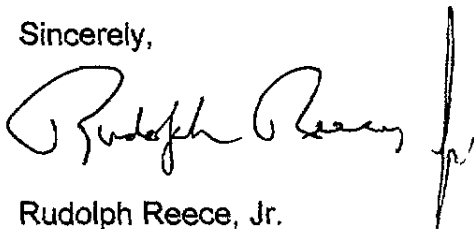 Sincerely,
Rudolph Reece, Jr.
Rudolph Reece, Jr.